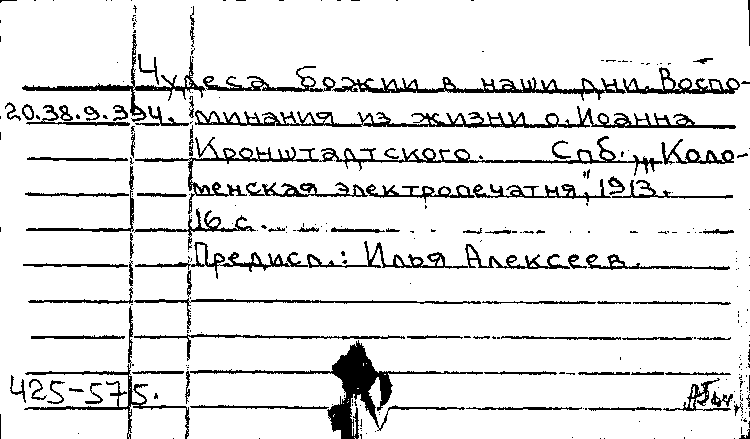 Чудеса божии в наши дни. Воспо-
20.38.9.394. минания из жизни о. Иоанна
Кронштадтского. Спб., „Коло-
менская электропечатня", 1913.
16 с.
Предисл.: Илья Алексеев.
425-575.